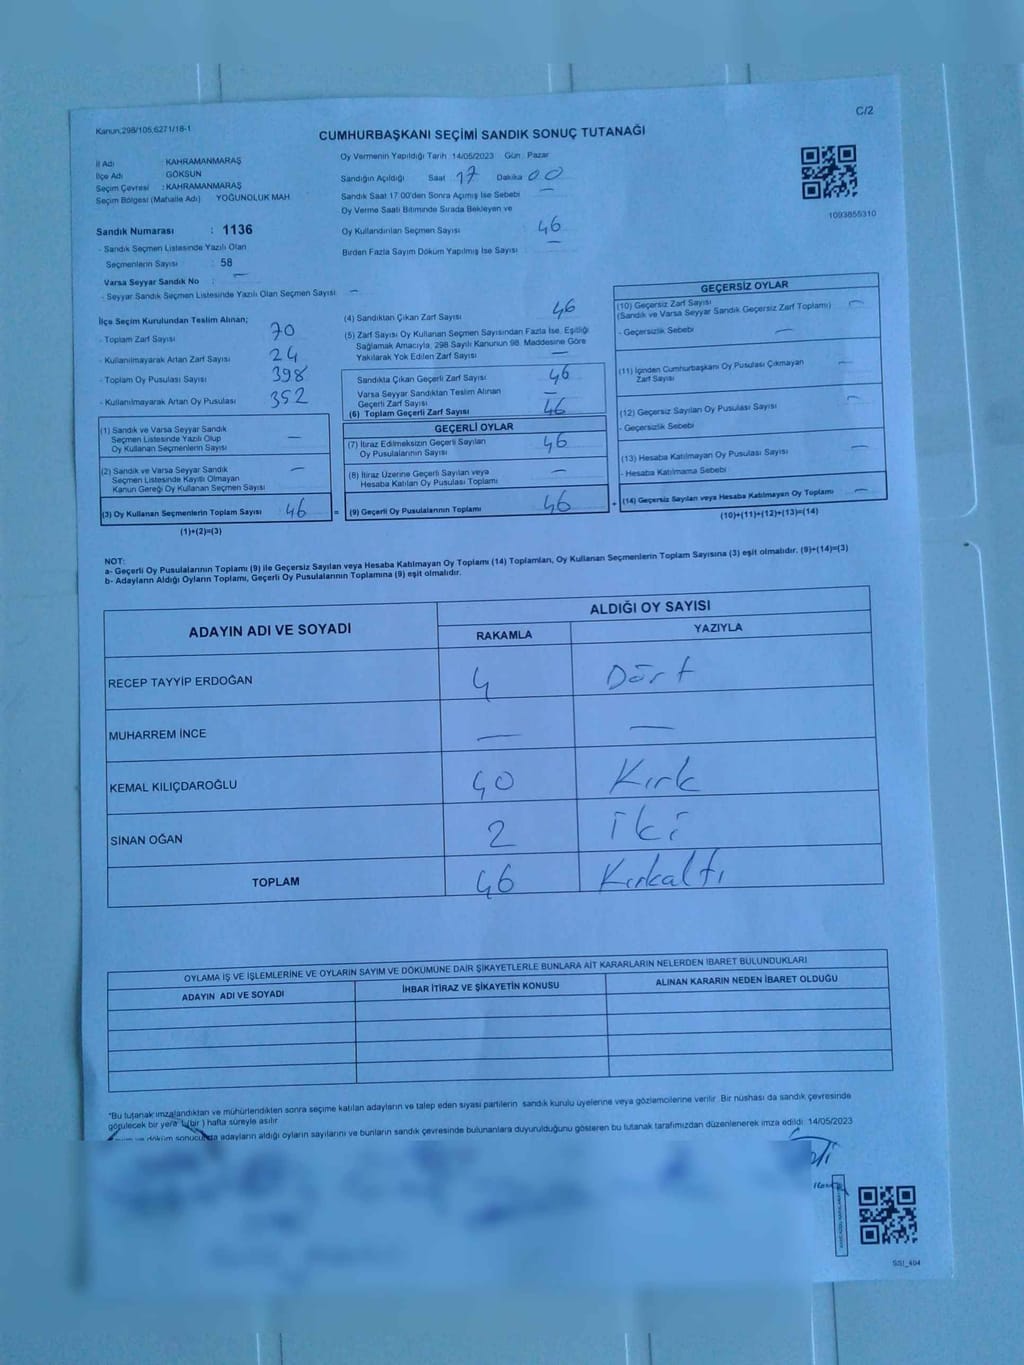 Kanun,298/105,6271/18-1
C/2
CUMHURBAŞKANI SEÇİMİ SANDIK SONUÇ TUTANAĞI
İl Adı : KAHRAMANMARAŞ
İlçe Adı GÖKSUN
Seçim Çevresi : KAHRAMANMARAŞ
Seçim Bölgesi (Mahalle Adı) YOĞUNOLUK MAH.
Sandık Numarası : 1136
- Sandık Seçmen Listesinde Yazılı Olan
Seçmenlerin Sayısı : 58
Varsa Seyyar Sandık No : —
- Seyyar Sandık Seçmen Listesinde Yazılı Olan Seçmen Sayısı —
Oy Vermenin Yapıldığı Tarih : 14/05/2023 Gün : Pazar
Sandığın Açıldığı Saat 17 Dakika 00
Sandık Saat 17:00'den Sonra Açımış İse Sebebi —
Oy Verme Saati Bitiminde Sırada Bekleyen ve
Oy Kullandırılan Seçmen Sayısı : 46
Birden Fazla Sayım Döküm Yapılmış İse Sayısı : —
1093855310
İlçe Seçim Kurulundan Teslim Alınan;
- Toplam Zarf Sayısı 70
- Kullanılmayarak Artan Zarf Sayısı 24
- Toplam Oy Pusulası Sayısı 398
- Kullanılmayarak Artan Oy Pusulası 352
(1) Sandık ve Varsa Seyyar Sandık
Seçmen Listesinde Yazılı Olup
Oy Kullanan Seçmenlerin Sayısı —
(2) Sandık ve Varsa Seyyar Sandık
Seçmen Listesinde Kayıtlı Olmayan
Kanun Gereği Oy Kullanan Seçmen Sayısı —
(3) Oy Kullanan Seçmenlerin Toplam Sayısı 46 =
(1)+(2)=(3)
(4) Sandıktan Çıkan Zarf Sayısı 46
(5) Zarf Sayısı Oy Kullanan Seçmen Sayısından Fazla İse, Eşitliği
Sağlamak Amacıyla, 298 Sayılı Kanunun 98. Maddesine Göre
Yakılarak Yok Edilen Zarf Sayısı —
Sandıkta Çıkan Geçerli Zarf Sayısı 46
Varsa Seyyar Sandıktan Teslim Alınan
Geçerli Zarf Sayısı —
(6) Toplam Geçerli Zarf Sayısı 46
GEÇERLİ OYLAR
(7) İtiraz Edilmeksizin Geçerli Sayılan
Oy Pusulalarının Sayısı 46
(8) İtiraz Üzerine Geçerli Sayılan veya
Hesaba Katılan Oy Pusulası Toplamı —
(9) Geçerli Oy Pusulalarının Toplamı 46 +
GEÇERSİZ OYLAR
(10) Geçersiz Zarf Sayısı
(Sandık ve Varsa Seyyar Sandık Geçersiz Zarf Toplamı) —
- Geçersizlik Sebebi —
(11) İçinden Cumhurbaşkanı Oy Pusulası Çıkmayan
Zarf Sayısı —
(12) Geçersiz Sayılan Oy Pusulası Sayısı —
- Geçersizlik Sebebi
(13) Hesaba Katılmayan Oy Pusulası Sayısı —
- Hesaba Katılmama Sebebi
(14) Geçersiz Sayılan veya Hesaba Katılmayan Oy Toplamı —
(10)+(11)+(12)+(13)=(14)
NOT:
a- Geçerli Oy Pusulalarının Toplamı (9) ile Geçersiz Sayılan veya Hesaba Katılmayan Oy Toplamı (14) Toplamları, Oy Kullanan Seçmenlerin Toplam Sayısına (3) eşit olmalıdır. (9)+(14)=(3)
b- Adayların Aldığı Oyların Toplamı, Geçerli Oy Pusulalarının Toplamına (9) eşit olmalıdır.
ADAYIN ADI VE SOYADI
ALDIĞI OY SAYISI
RAKAMLA YAZIYLA
RECEP TAYYİP ERDOĞAN 4 Dört
MUHARREM İNCE — —
KEMAL KILIÇDAROĞLU 40 Kırk
SİNAN OĞAN 2 iki
TOPLAM 46 Kırkaltı
OYLAMA İŞ VE İŞLEMLERİNE VE OYLARIN SAYIM VE DÖKÜMÜNE DAİR ŞİKAYETLERLE BUNLARA AİT KARARLARIN NELERDEN İBARET BULUNDUKLARI
ADAYIN ADI VE SOYADI İHBAR İTİRAZ VE ŞİKAYETİN KONUSU ALINAN KARARIN NEDEN İBARET OLDUĞU
"Bu tutanak imzalandıktan ve mühürlendikten sonra seçime katılan adayların ve talep eden siyasi partilerin sandık kurulu üyelerine veya gözlemcilerine verilir. Bir nüshası da sandık çevresinde
görülecek bir yere 1 (bir) hafta süreyle asılır.
döküm sonucunda adayların aldığı oyların sayılarını ve bunların sandık çevresinde bulunanlara duyurulduğunu gösteren bu tutanak tarafımızdan düzenlenerek imza edildi. 14/05/2023
SS1_404